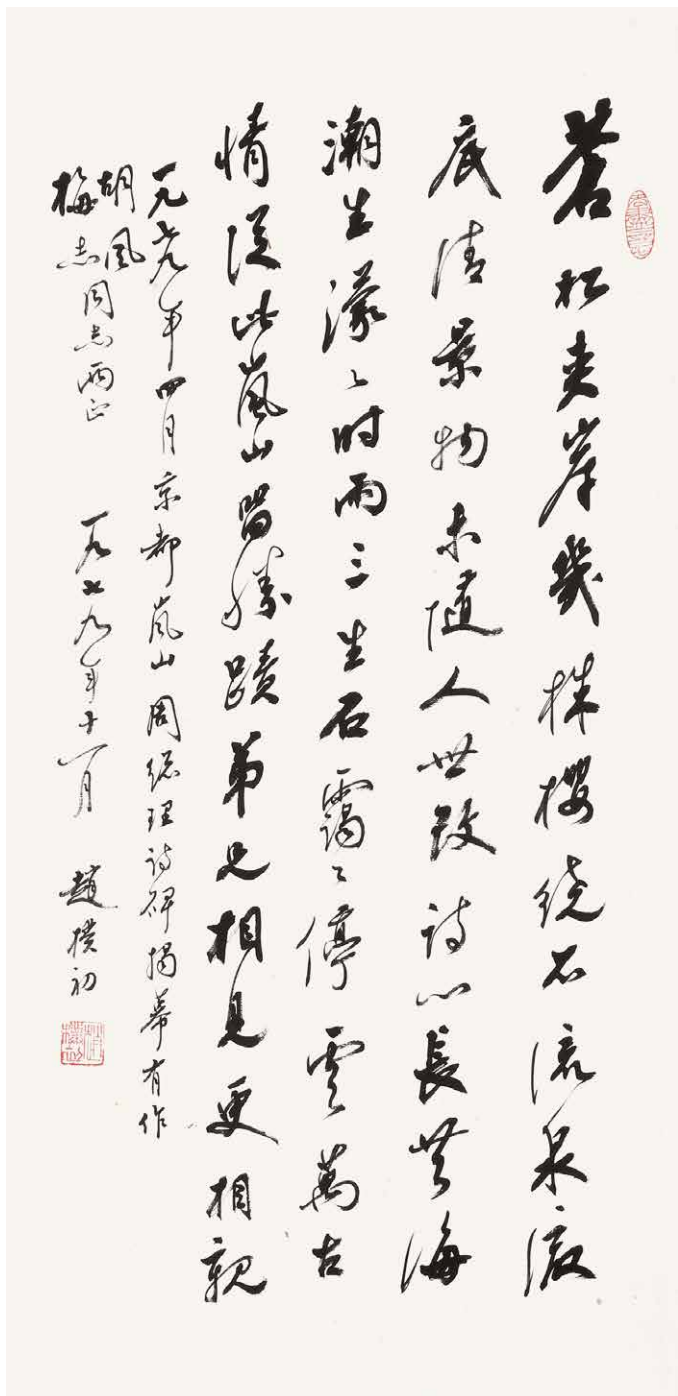 蒼松夾岸幾株櫻繞石流泉澈
底清景物未隨人世改詩心長共海
潮生濛々时雨三生石靄々停雲萬古
情從此嵐山留勝蹟弟兄相見更相親
一九七九年四月京都嵐山周總理詩碑揭幕有作
胡風
梅志同志兩正 一九七九年十一月 趙樸初
趙樸初